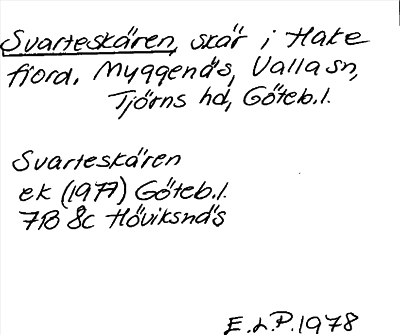 Svarteskären, skär i Hake
fjord. Myggenäs, Valla sn,
Tjörns hd, Göteb.l.
Svarteskären
ek (1977) Göteb.l.
7B 8c Höviksnäs
E.L.P. 1978